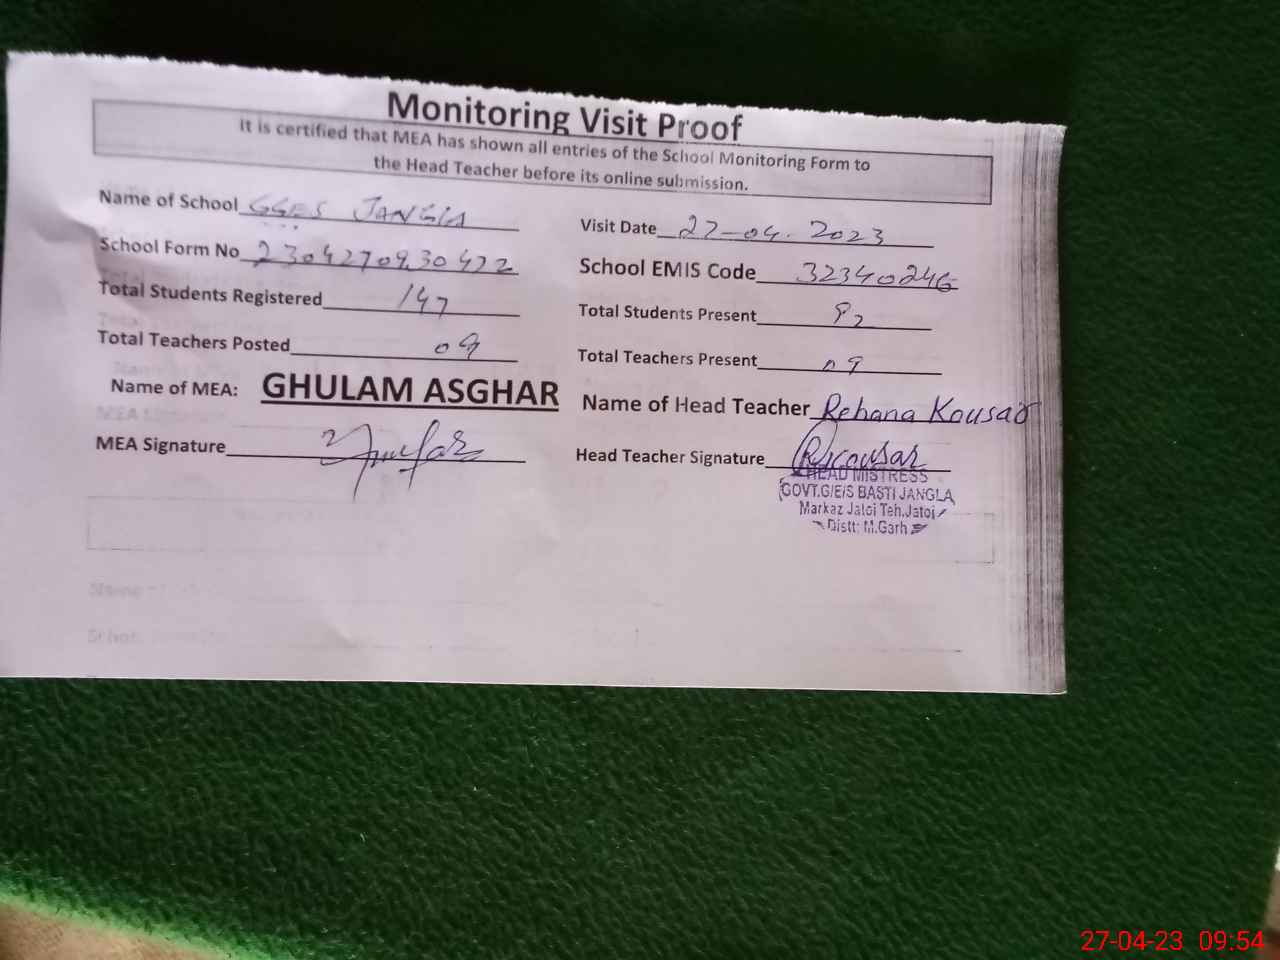 Monitoring Visit Proof
It is certified that MEA has shown all entries of the School Monitoring Form to
the Head Teacher before its online submission.
Name of School GGES JANGLA
Visit Date 27-04-2023
School Form No
School EMIS Code 32340246
Total Students Registered 147
Total Students Present
Total Teachers Posted 09
Total Teachers Present 09
Name of MEA: GHULAM ASGHAR
Name of Head Teacher Rehana Kousar
MEA Signature
Head Teacher Signature RKousar
HEAD MISTRESS
GOVT.G/E/S BASTI JANGLA
Markaz Jatoi Teh.Jatoi
Distt: M.Garh
27-04-23 09:54